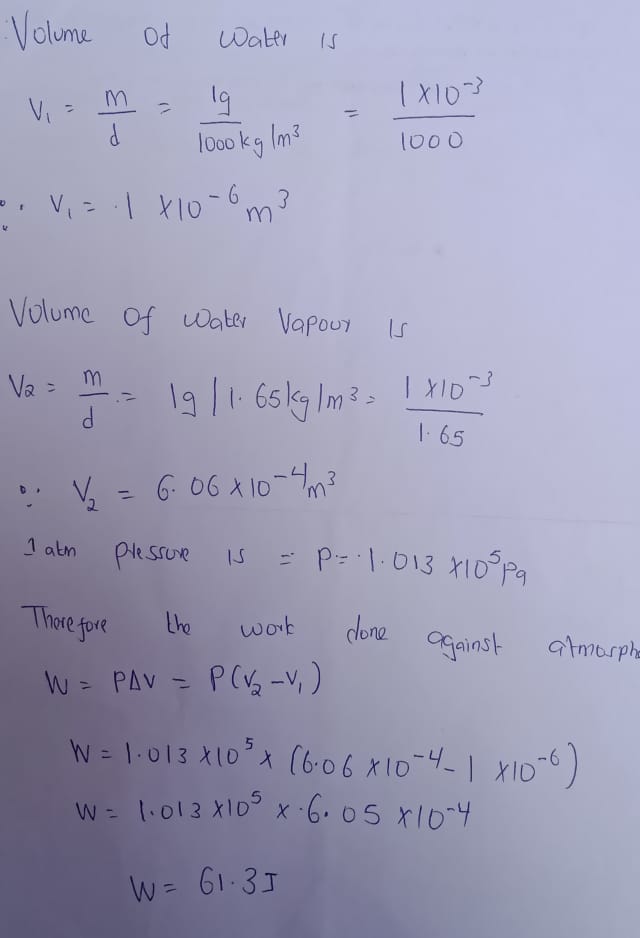 Volume of water is
V₁ = m/d = 1g/1000kg/m³ = 1×10⁻³/1000
∴ V₁ = 1 ×10⁻⁶ m³
Volume of water vapour is
V₂ = m/d = 1g/1.65kg/m³ = 1×10⁻³/1.65
∵ V₂ = 6.06 ×10⁻⁴m³
1 atm pressure is = P = 1.013 ×10⁵Pa
Therefore the work done against atmosphe
W = PΔV = P(V₂ - V₁)
W = 1.013 ×10⁵ × (6.06 ×10⁻⁴ - 1 ×10⁻⁶)
W = 1.013 ×10⁵ × 6.05 ×10⁻⁴
W = 61.3J